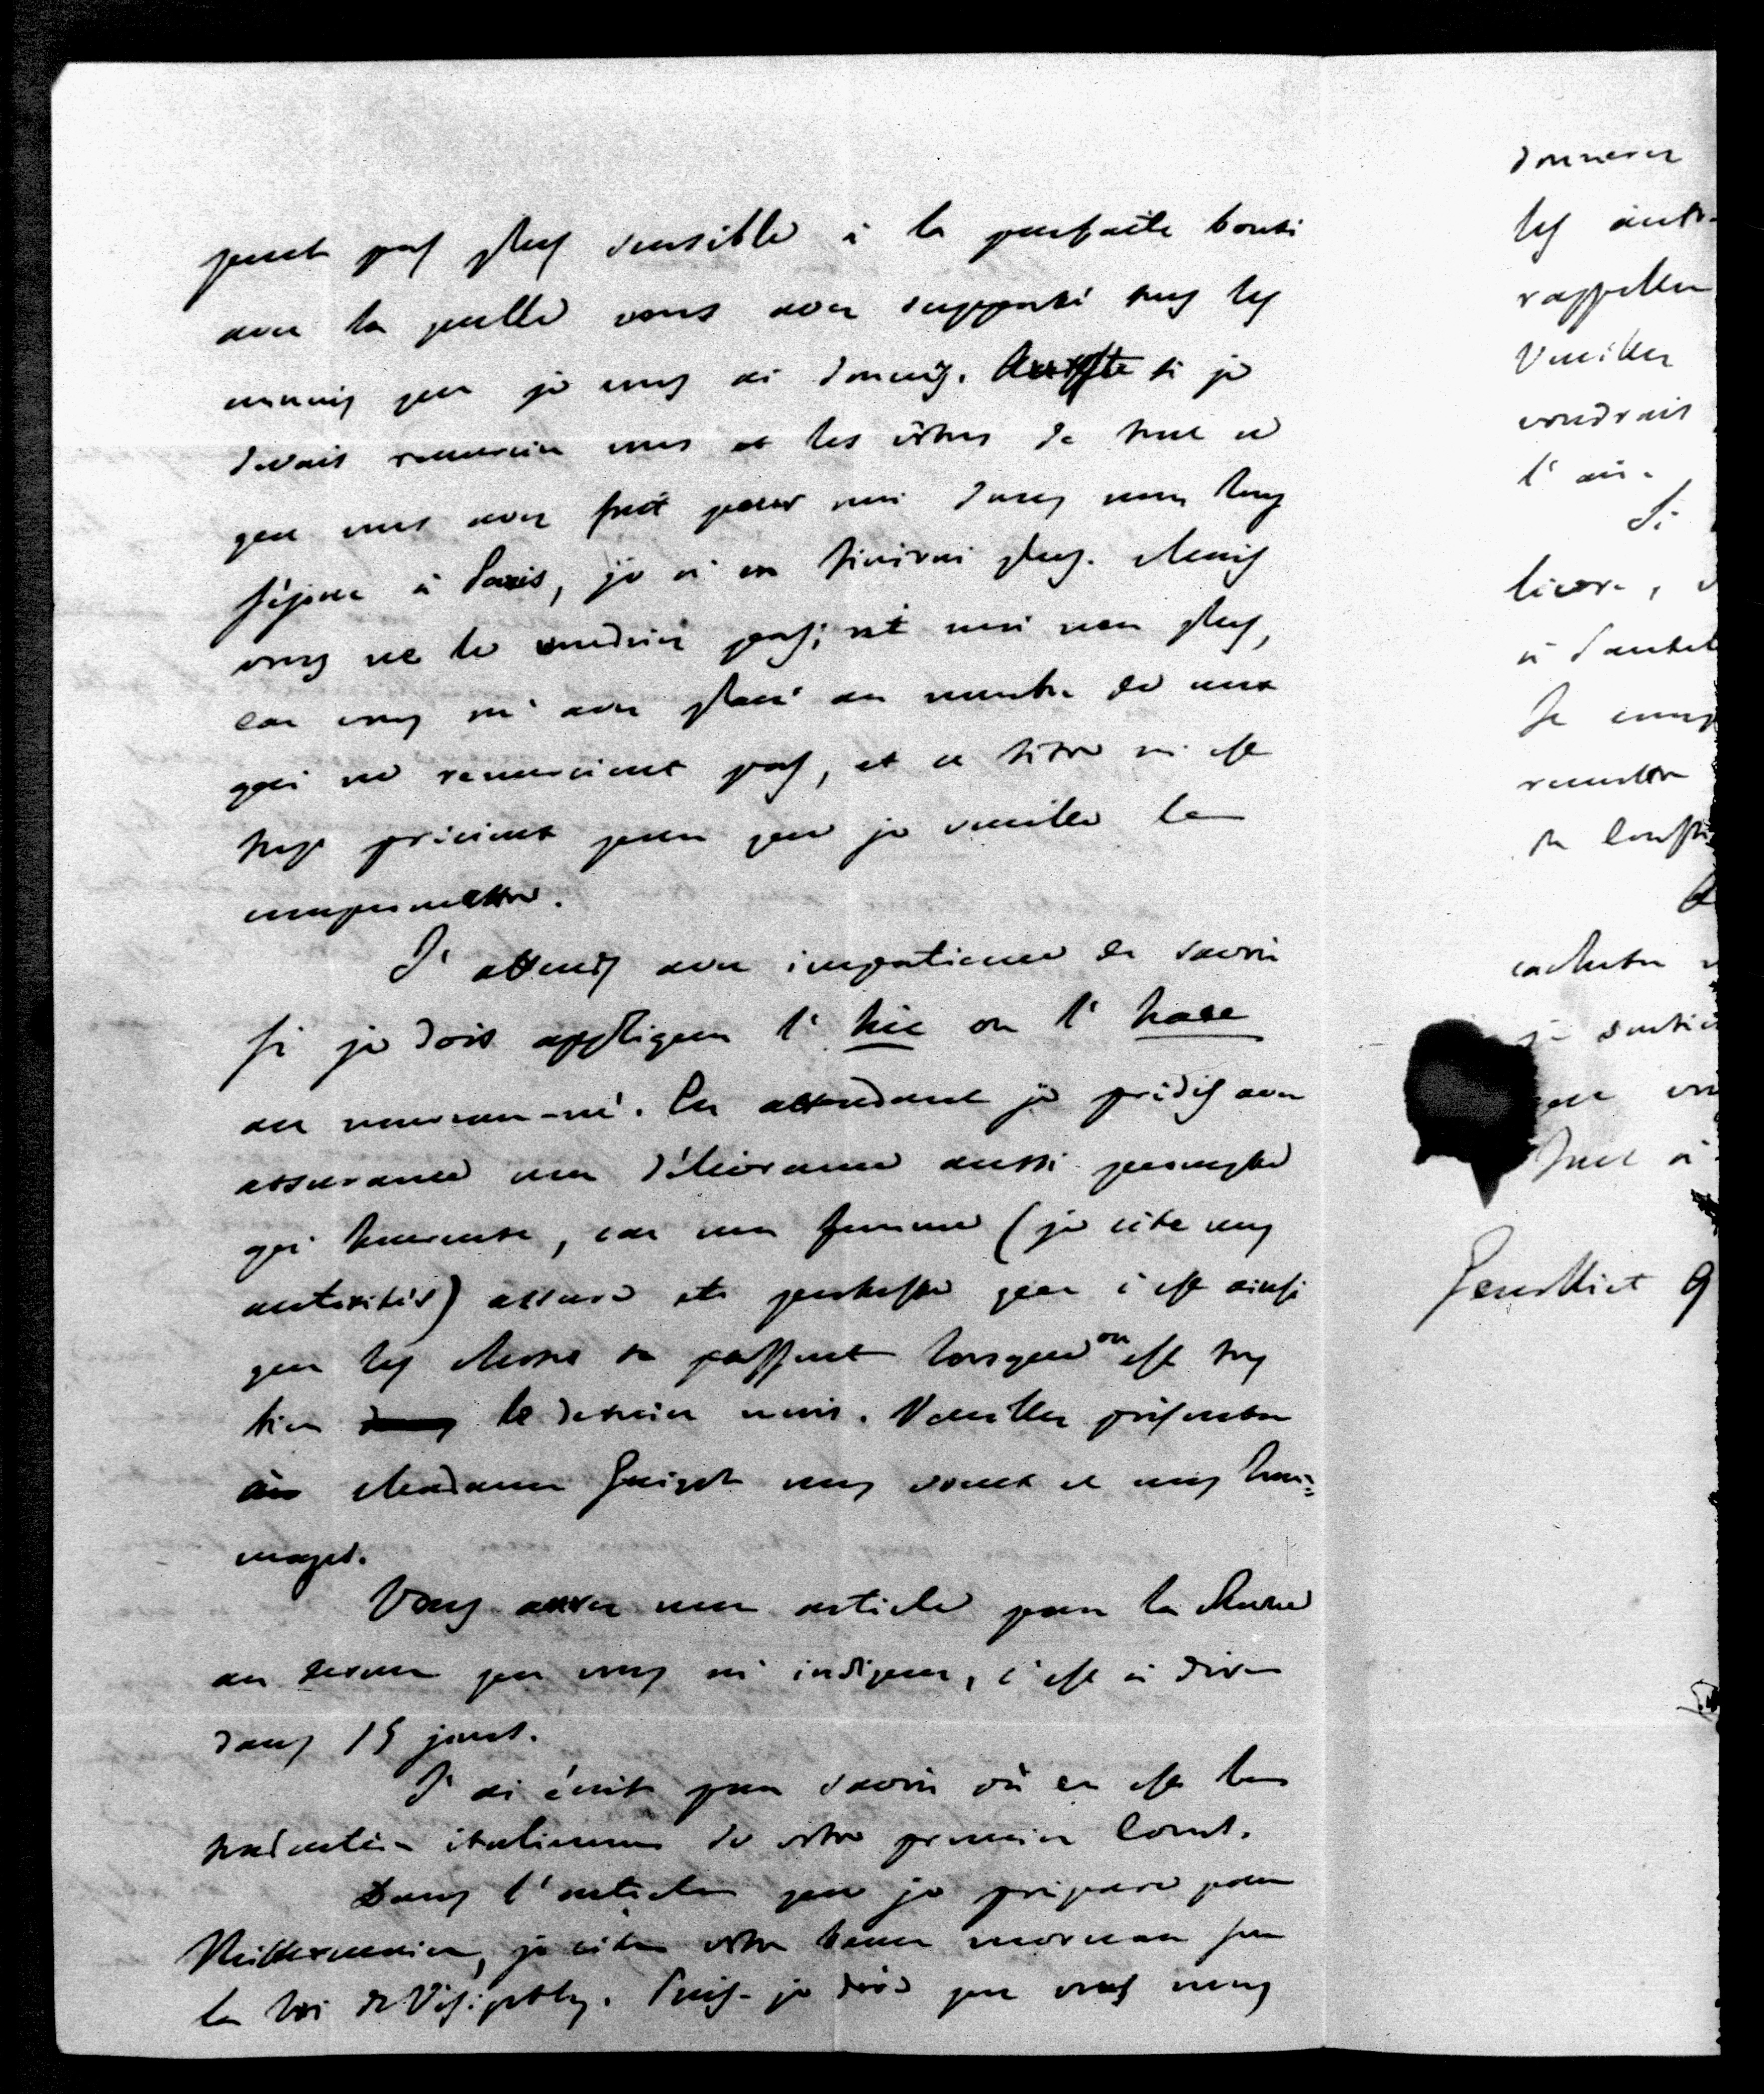 peut pas plus sensible à la parfaite bonté
avec la quelle vous avez supporté tous les
ennuis que je vous ai donnés. si je
devais remercier vous et les vôtres de tout ce
que vous avez fait pour moi dans mon long
séjour à Paris, je n'en finirai plus. Mais
vous ne le voudriez pas; et moi non plus,
car vous m'avez placé au nombre de ceux
qui ne remercient pas, et ce titre m'est
trop précieux pour que je veuille le
compromettre.
J'attends avec impatience de savoir
si je dois appliquer l'hic ou l'haec
au nouveau-né. En attendant je prédis avec
assurance une délivrance aussi prompte
qu'heureuse, car ma femme (je cite mes
autorités) assure et proteste que c'est ainsi
que les choses se passent lorsque on est très
bien le dernier mois. Veuillez présenter
à Madame Guizot mes voeux et mes hom=
mages.
Vous aurez mon article pour la Revue
au terme que vous m'indiquez, c'est à dire
dans 15 jours.
J'ai écrit pour savoir où en est la
traduction italienne de votre premier Cours.
Dans l'article que je prépare pour
Mittermaier, je cite votre beau morceau sur
la loi des Visigoths. Puis-je dire que vous nous
donnerez
les autr-
rappeller
Veuillez
voudrais
l'ai.
Si
livre,
à Pantel
Je
remettre
cachetter
Tout à